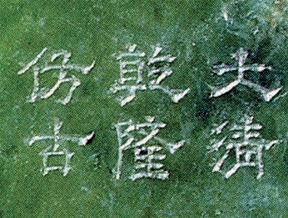 大清
乾隆
仿古